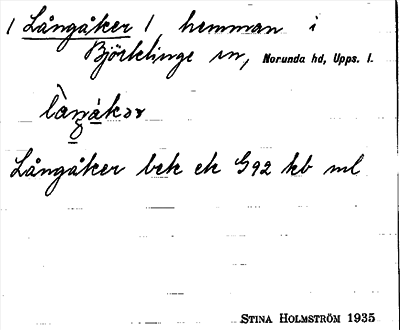 / Långåker / hemman i
Björklinge sn, Norunda hd, Upps. l.
Långåker bek ek G92 kb ml
STINA HOLMSTRÖM 1935